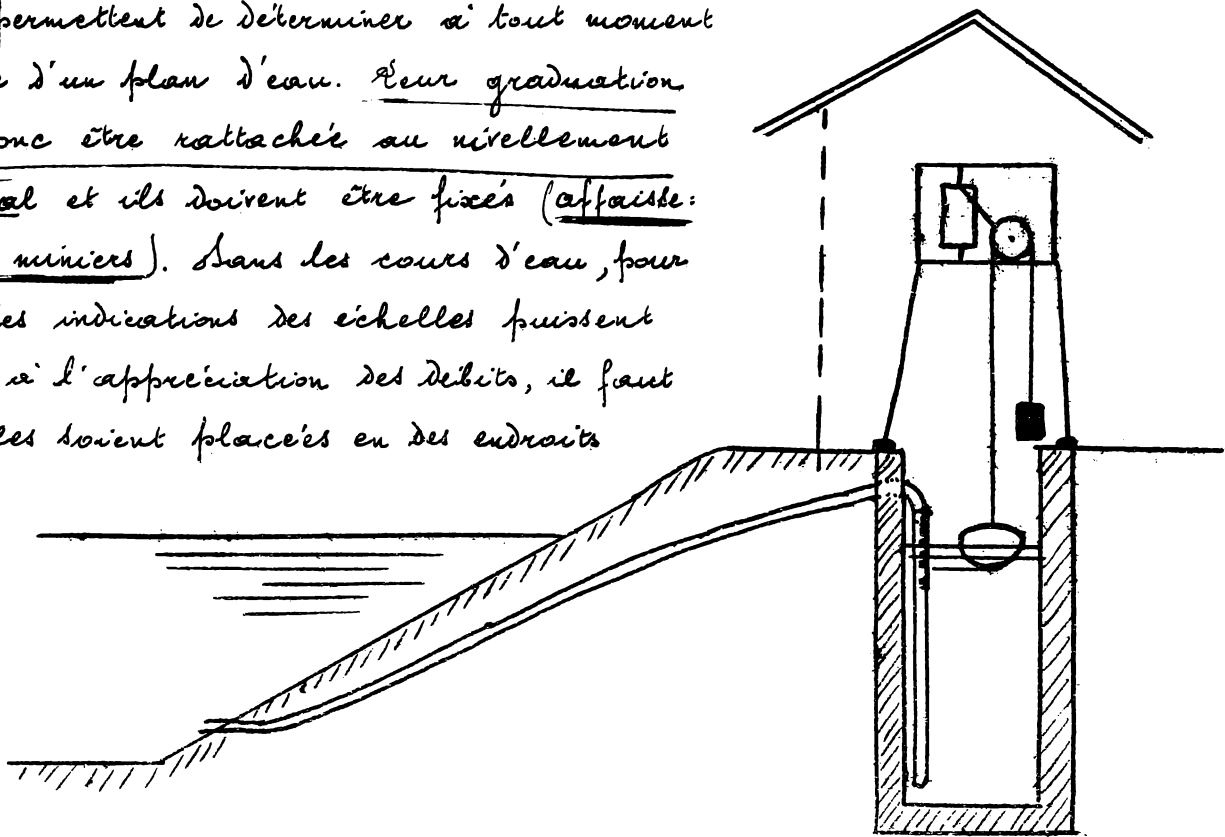 permettent de déterminer à tout moment
d'un plan d'eau. Leur graduation
onc être rattachée au nivellement
al et ils doivent être fixés (affaisse:
miniers). Dans les cours d'eau, pour
es indications des échelles puissent
à l'appréciation des débits, il faut
les soient placées en des endroits